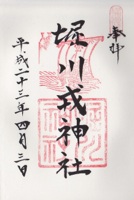 奉拝
堀川戎神社
平成二十三年四月三日